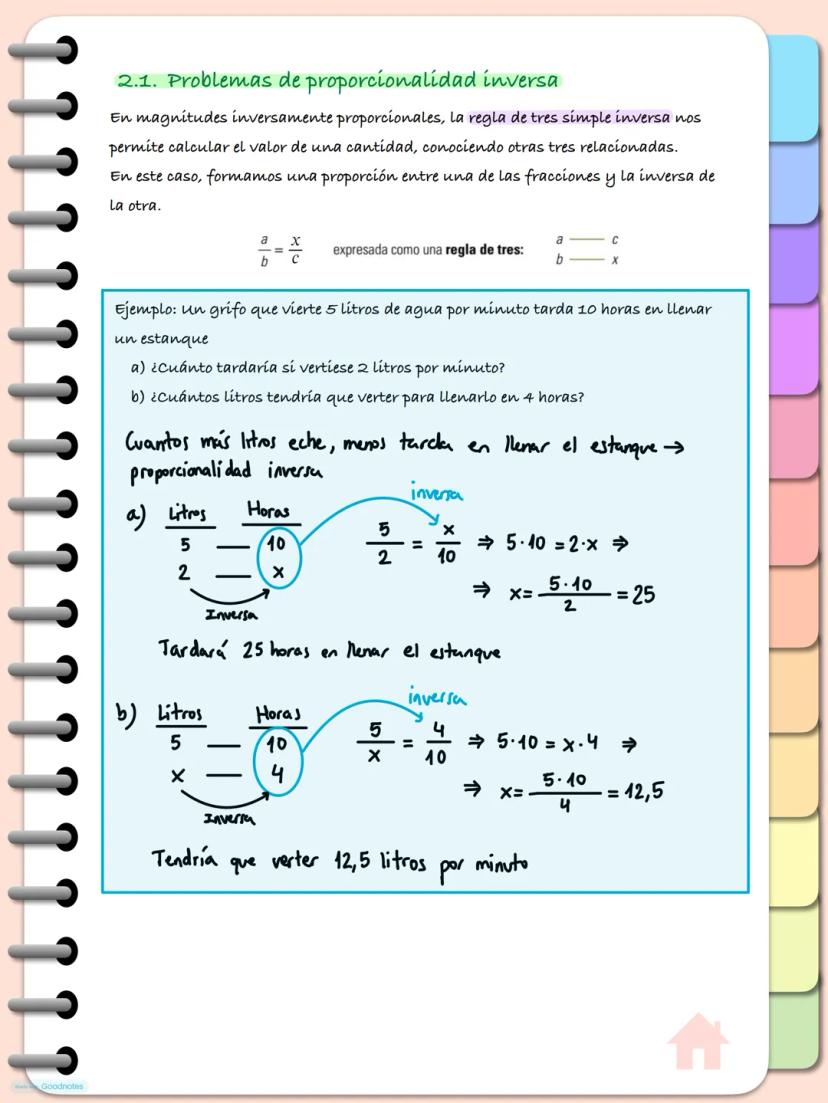 2.1. Problemas de proporcionalidad inversa
En magnitudes inversamente proporcionales, la regla de tres simple inversa nos
permite calcular el valor de una cantidad, conociendo otras tres relacionadas.
En este caso, formamos una proporción entre una de las fracciones y la inversa de
la otra.
a/b = x/c expresada como una regla de tres: a — c
b — x
Ejemplo: Un grifo que vierte 5 litros de agua por minuto tarda 10 horas en llenar
un estanque
a) ¿Cuánto tardaría si vertiese 2 litros por minuto?
b) ¿Cuántos litros tendría que verter para llenarlo en 4 horas?
Cuantos más litros eche, menos tarda en llenar el estanque →
proporcionalidad inversa
inversa
a) Litros Horas
5 — 10 5/2 = x/10 ⇒ 5·10 = 2·x ⇒
2 — x ⇒ x = 5·10/2 = 25
Inversa
Tardará 25 horas en llenar el estanque
inversa
b) Litros Horas
5 — 10 5/x = 4/10 ⇒ 5·10 = x·4 ⇒
x — 4 ⇒ x = 5·10/4 = 12,5
Inversa
Tendría que verter 12,5 litros por minuto
Goodnotes